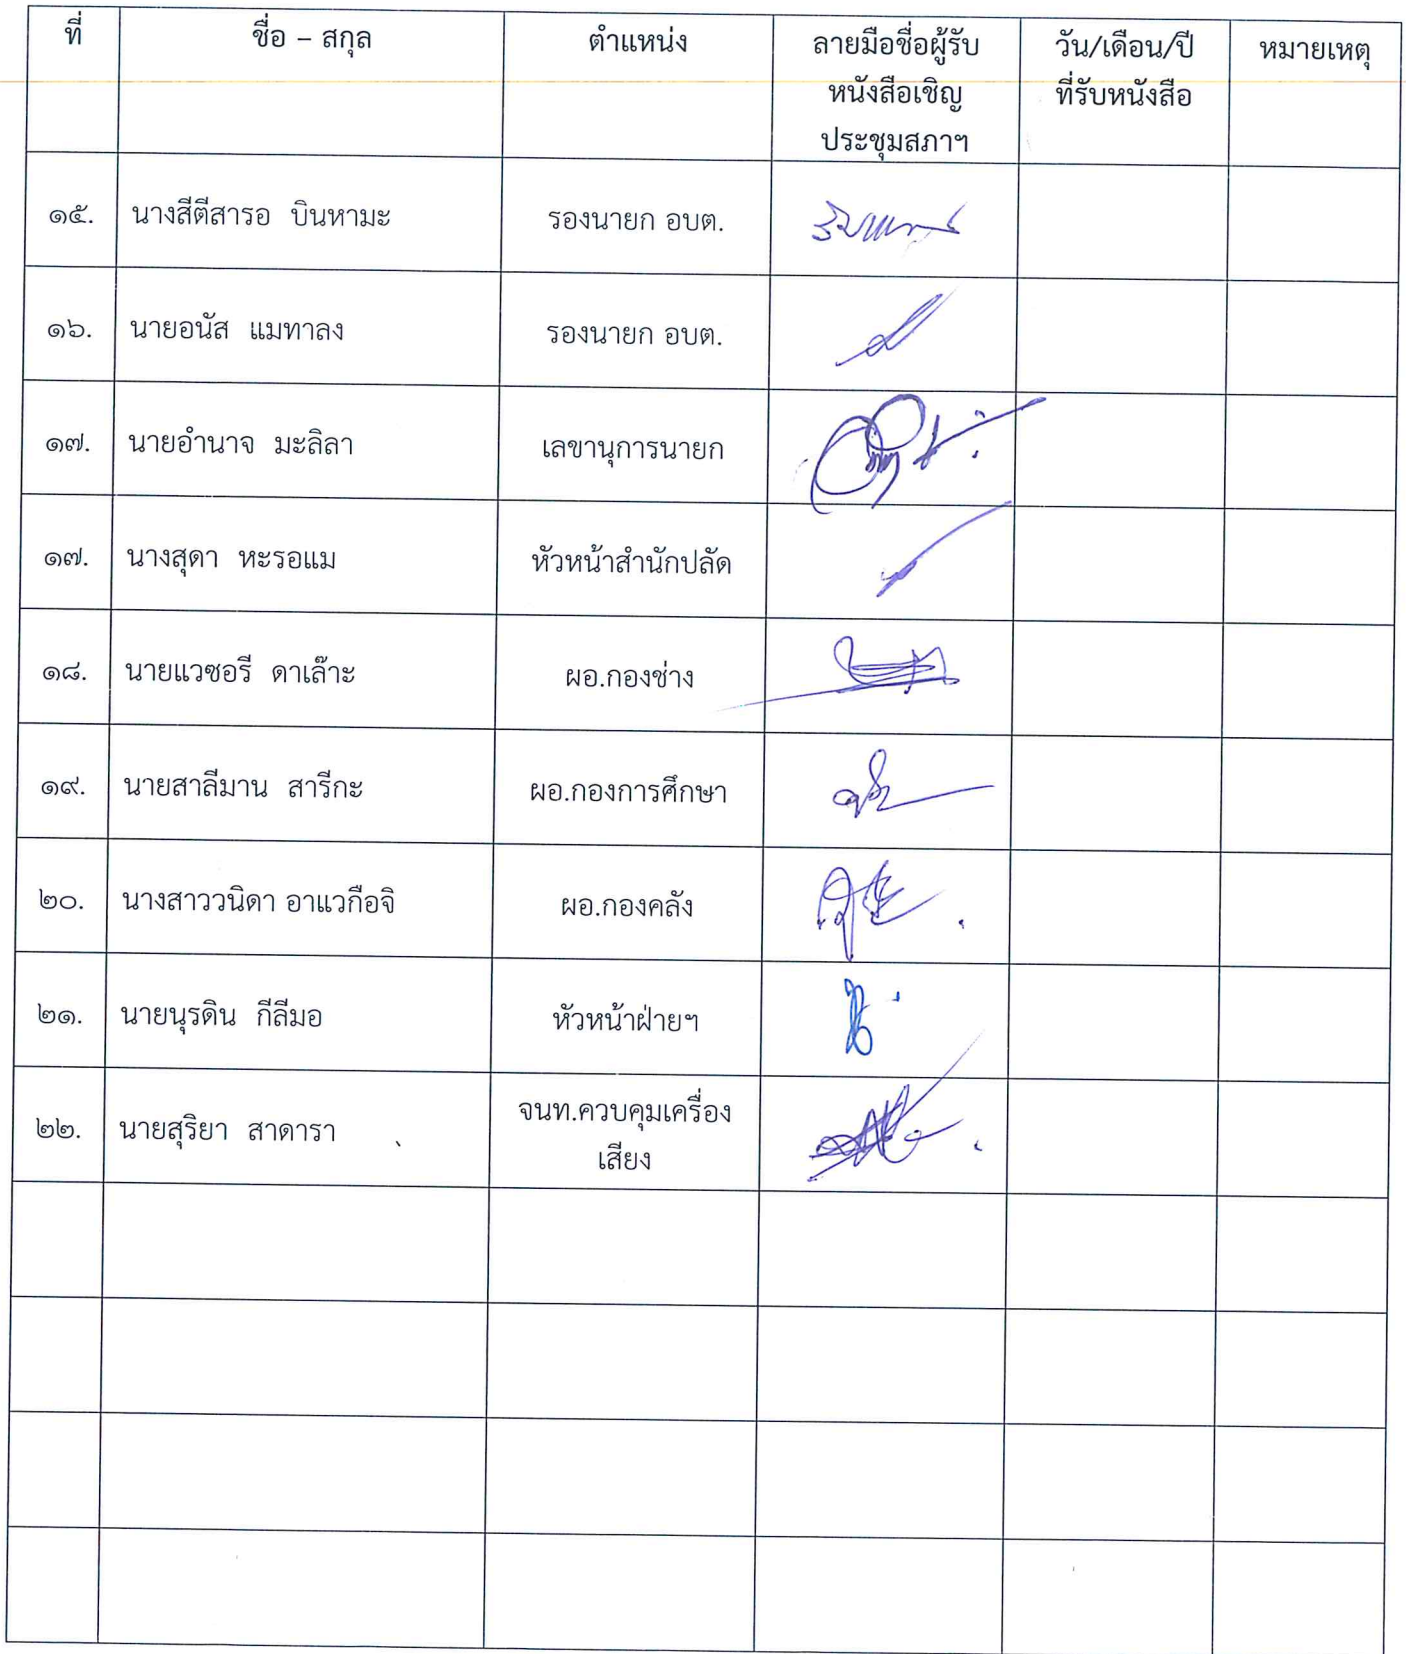 ที่ ชื่อ – สกุล ตำแหน่ง ลายมือชื่อผู้รับ วัน/เดือน/ปี หมายเหตุ
หนังสือเชิญ ที่รับหนังสือ
ประชุมสภาฯ
๑๕. นางสีตีสารอ บินหามะ รองนายก อบต.
๑๖. นายอนัส แมทาลง รองนายก อบต.
๑๗. นายอำนาจ มะลิลา เลขานุการนายก
๑๗. นางสุดา หะรอแม หัวหน้าสำนักปลัด
๑๘. นายแวซอรี ดาเล๊าะ ผอ.กองช่าง
๑๙. นายสาลีมาน สารีกะ ผอ.กองการศึกษา
๒๐. นางสาววนิดา อาแวกือจิ ผอ.กองคลัง
๒๑. นายนุรดิน กีลีมอ หัวหน้าฝ่ายฯ
๒๒. นายสุริยา สาดารา จนท.ควบคุมเครื่อง
เสียง